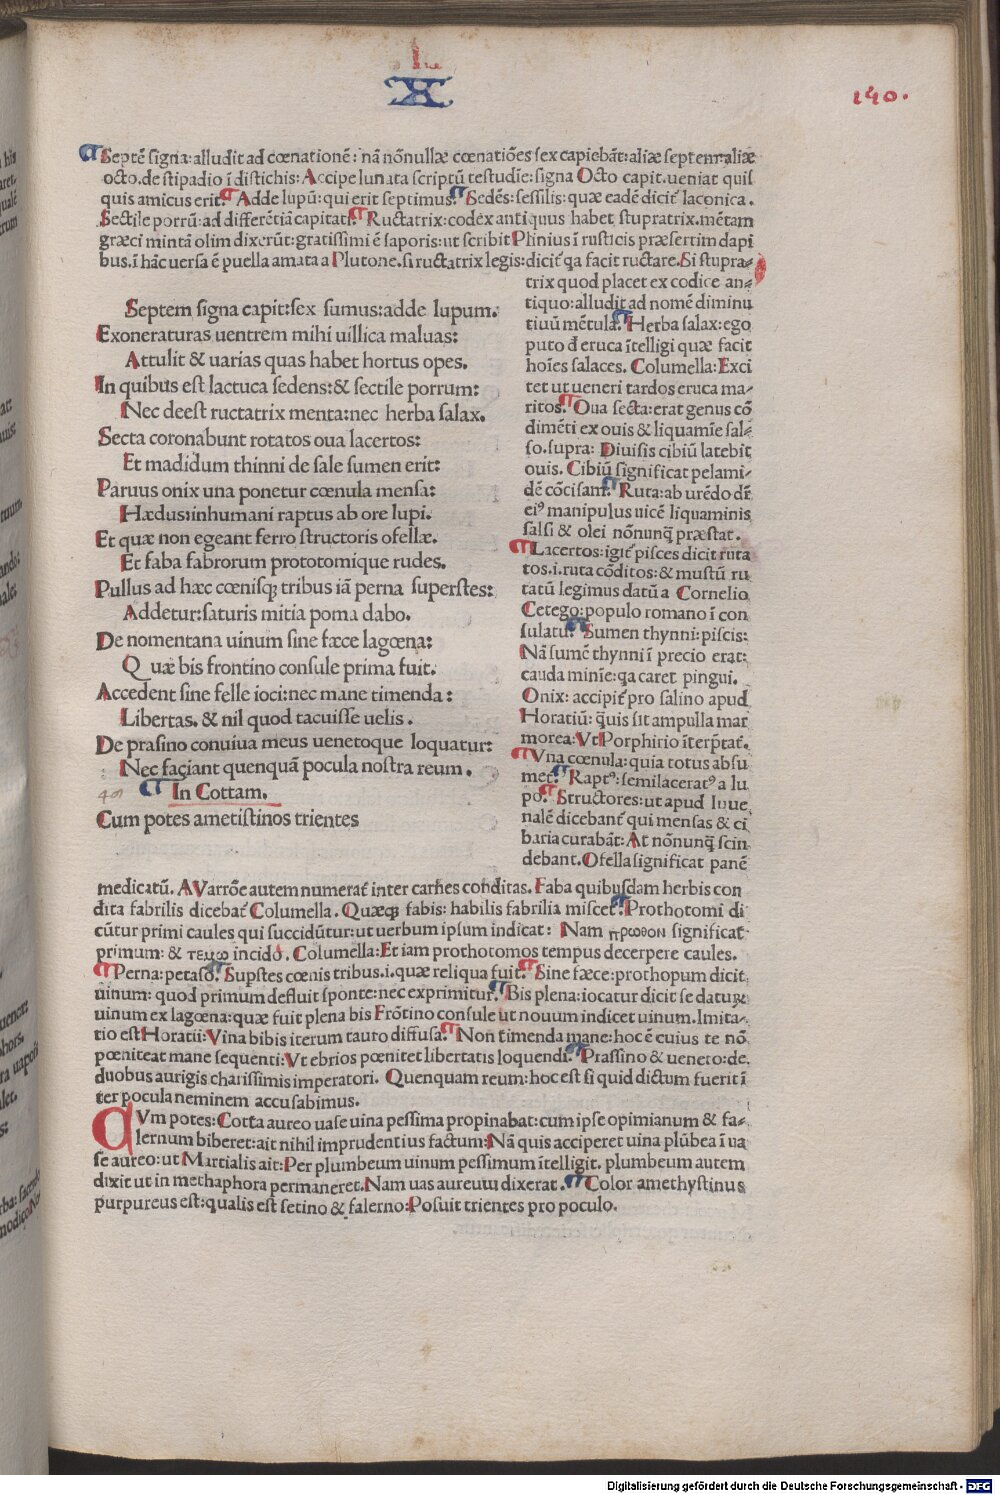 X
190.
Septē signa: alludit ad cœnationē: nā nōnullæ cœnatiōes sex capiebāt: aliæ septem: aliæ
octo. de stipadio ī distichis: Accipe lunata scriptū testudīe: signa Octo capit. ueniat quis
quis amicus erit. Adde lupū: qui erit septimus. Sedēs: sessilis: quæ eadē dicit laconica.
Sectile porrū: ad differētiā capitati. Ructatrix: codex antiquus habet stupratrix. mētam
græci mintā olim dixerūt: gratissimi ē saporis: ut scribit Plinius ī rusticis præsertim dapi
bus. ī hāc uersa ē puella amata a Plutone. si ructatrix legis: dicit qa facit ructare. Si stupra-
trix quod placet ex codice an-
tiquo: alludit ad nomē diminu
tiuū mētula. Herba salax: ego
puto đ eruca ītelligi quæ facit
hoīes salaces. Columella: Exci
tet ut ueneri tardos eruca ma-
ritos. Oua secta: erat genus cō
dimēti ex ouis & liquamīe sal-
so. supra: Diuisis cibiū latebit
ouis. Cibiū significat pelami-
dē cōcisam. Ruta: ab urēdo dr̄
ei⁹ manipulus uicē liquaminis
salsi & olei nōnunq̄ præstat.
Lacertos: igit̄ pisces dicit ruta
tos. i. ruta cōditos: & mustū ru
tatū legimus datū a Cornelio
Cetego: populo romano ī con
sulatu. Sumen thynni: piscis:
Nā sumē thynni ī precio erat:
cauda minīe: qa caret pingui.
Onix: accipit̄ pro salino apud
Horatiū: q̄uis sit ampulla mar
morea: Vt Porphirio īterp̄tat̄.
Vna cœnula: quia totus absu
met. Rapt⁹: semilacerat⁹ a lu
po. Structores: ut apud Iuue
nalē dicebant̄ qui mensas & ci
baria curabāt: At nōnunq̄ scin
debant. Ofella significat panē
Septem signa capit: sex sumus: adde lupum.
Exoneraturas uentrem mihi uillica maluas:
Attulit & uarias quas habet hortus opes.
In quibus est lactuca sedens: & sectile porrum:
Nec deest ructatrix menta: nec herba salax.
Secta coronabunt rotatos oua lacertos:
Et madidum thinni de sale sumen erit:
Paruus onix una ponetur cœnula mensa:
Hædus: inhumani raptus ab ore lupi.
Et quæ non egeant ferro structoris ofellæ.
Et faba fabrorum prototomique rudes.
Pullus ad hæc cœnisq; tribus iā perna superstes:
Addetur: saturis mitia poma dabo.
De nomentana uinum sine fæce lagœna:
Quæ bis frontino consule prima fuit.
Accedent sine felle ioci: nec mane timenda:
Libertas. & nil quod tacuisse uelis.
De prasino conuiua meus uenetoque loquatur:
Nec façiant quenquā pocula nostra reum.
In Cottam.
Cum potes ametistinos trientes
medicatū. A Varrōe autem numerat̄ inter carnes conditas. Faba quibusdam herbis con
dita fabrilis dicebat̄ Columella. Quæq; fabis: habilis fabrilia miscet. Prothotomi di
cūtur primi caules qui succidūtur: ut uerbum ipsum indicat: Nam πρωθον significat
primum: & τεμω incido. Columella: Et iam prothotomos tempus decerpere caules.
Perna: petaso. Supstes cœnis tribus. i. quæ reliqua fuit. Sine fæce: prothopum dicit
uinum: quod primum defluit sponte: nec exprimitur. Bis plena: iocatur dicit se datuꝝ
uinum ex lagœna: quæ fuit plena bis Frōtino consule ut nouum indicet uinum. Imita-
tio est Horatii: Vina bibis iterum tauro diffusa. Non timenda mane: hoc ē cuius te nō
pœniteat mane sequenti: Vt ebrios pœnitet libertatis loquendi. Prassino & ueneto: de
duobus aurigis charissimis imperatori. Quenquam reum: hoc est si quid dictum fuerit ī
ter pocula neminem accusabimus.
CVm potes: Cotta aureo uase uina pessima propinabat: cum ipse opimianum & fa-
lernum biberet: ait nihil imprudentius factum: Nā quis acciperet uina plūbea ī ua
se aureo: ut Martialis ait: Per plumbeum uinum pessimum ītelligit. plumbeum autem
dixit ut in methaphora permaneret. Nam uas aureum dixerat. Color amethystinus
purpureus est: qualis est setino & falerno: Posuit trientes pro poculo.
Digitalisierung gefördert durch die Deutsche Forschungsgemeinschaft - DFG